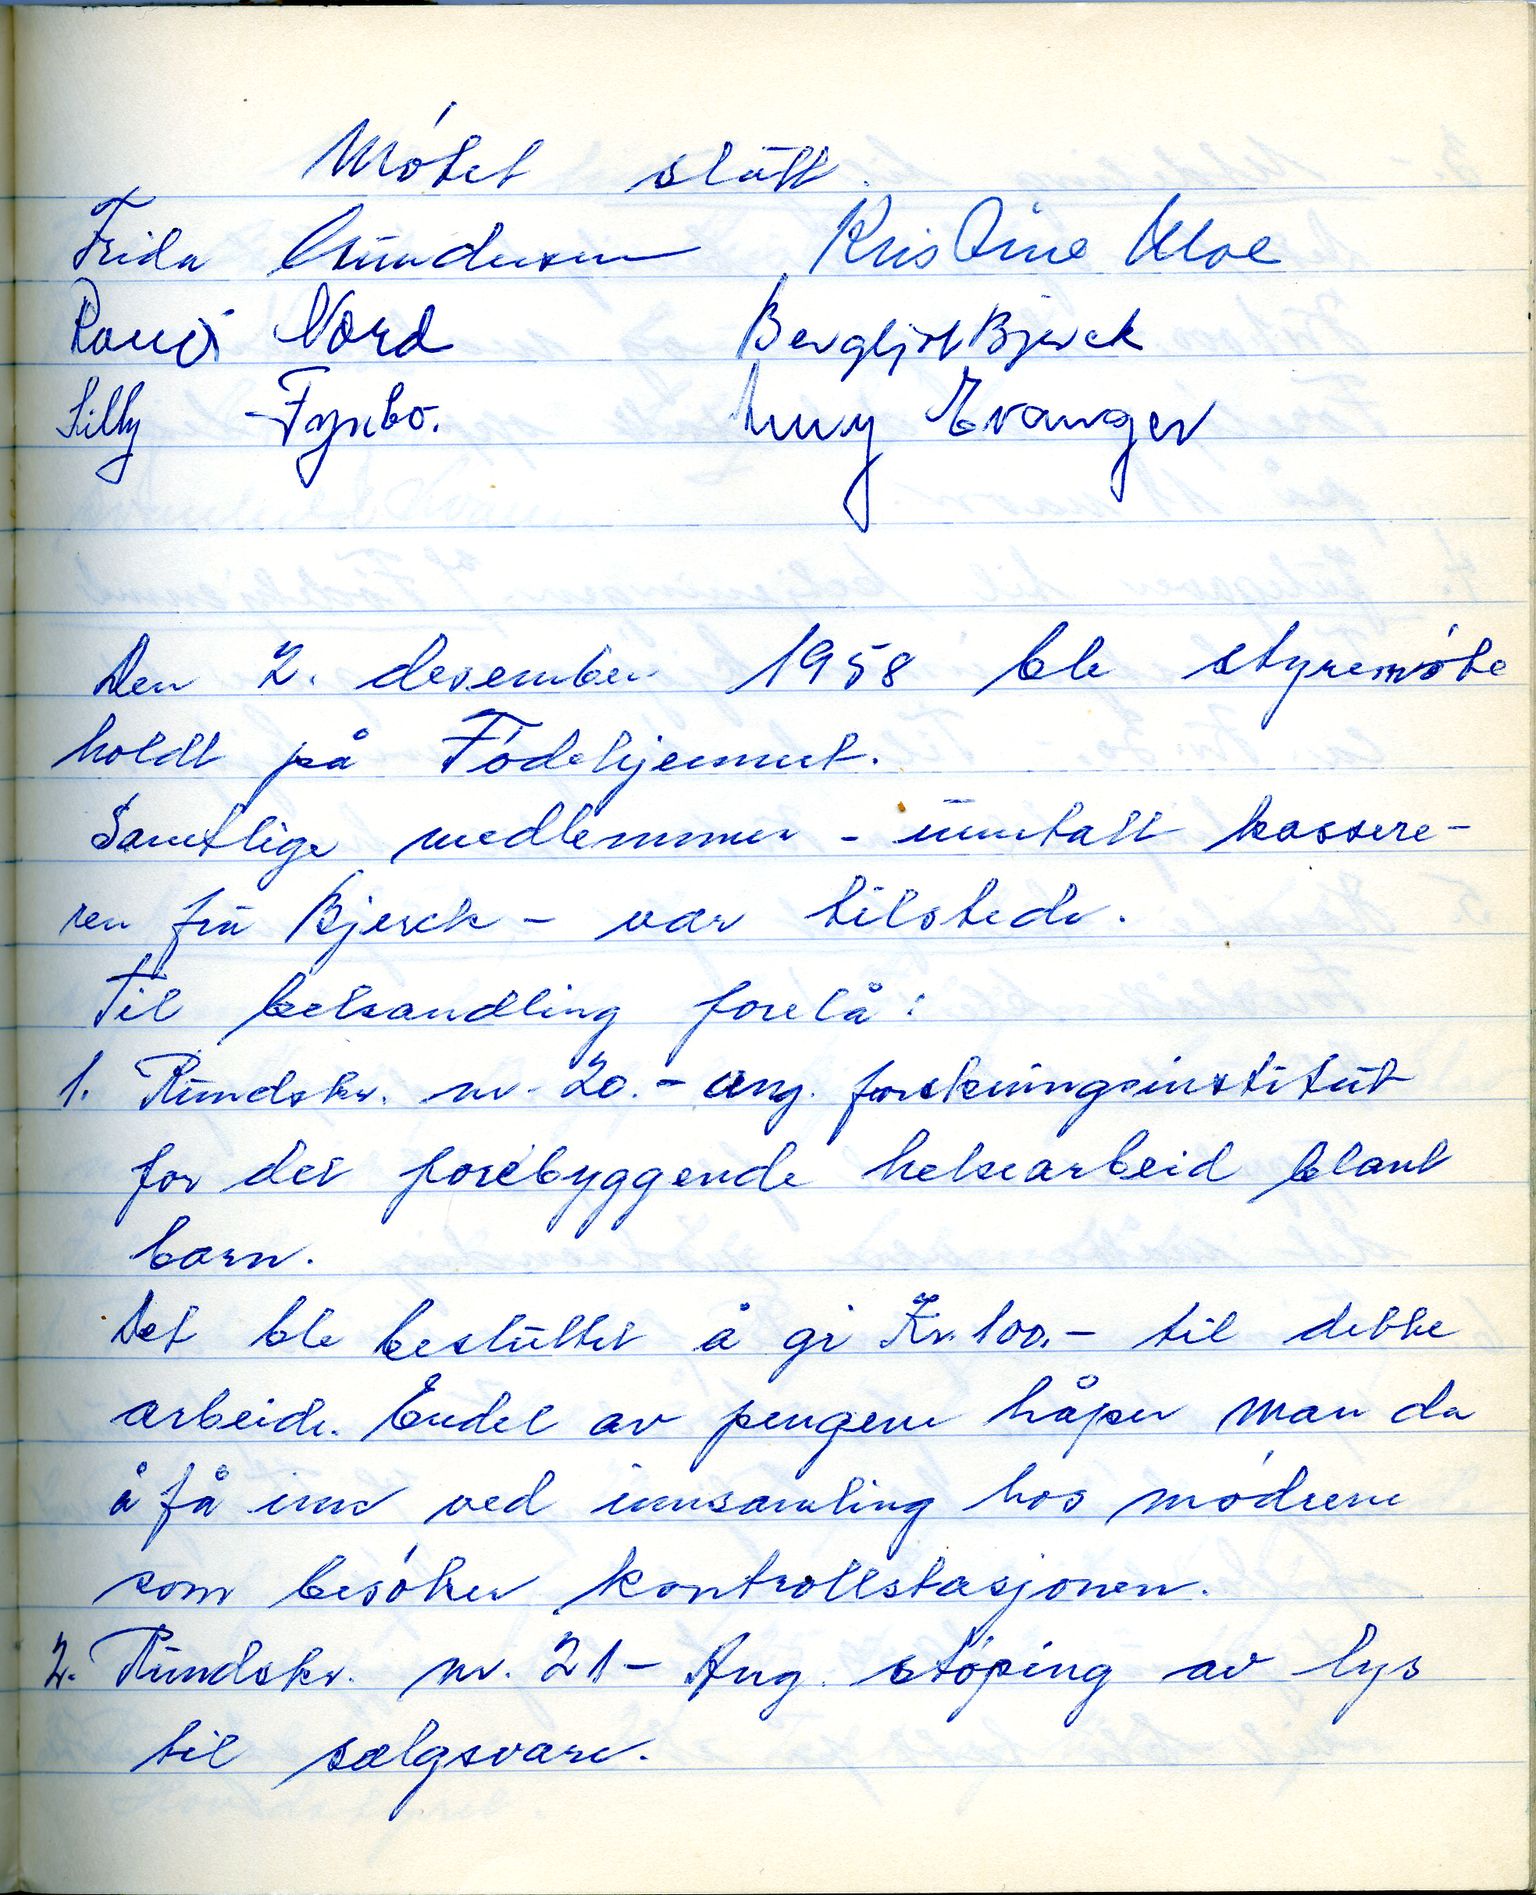 Møtet slutt.
Frida Gundersen Kristine Moe
Nord Bergljot Bjerck
Lilly Fynbo. Evanger
Den 2. desember 1958 ble styremøte
holdt på Fødehjemmet.
Samtlige medlemmer - unntatt kassere-
ren fru Bjerck - var tilstede.
Til behandling forelå:
1. Rundskr. nr. 20. - ang. forskningsinstitut
for det forebyggende helsearbeid blant
barn.
Det ble besluttet å gi Kr. 100.- til dette
arbeide. Endel av pengene håper man da
å få inn ved innsamling hos mødrene
som besøker kontrollstasjonen.
2. Rundskr. nr. 21 - Ang. støping av lys
til salgsvare.